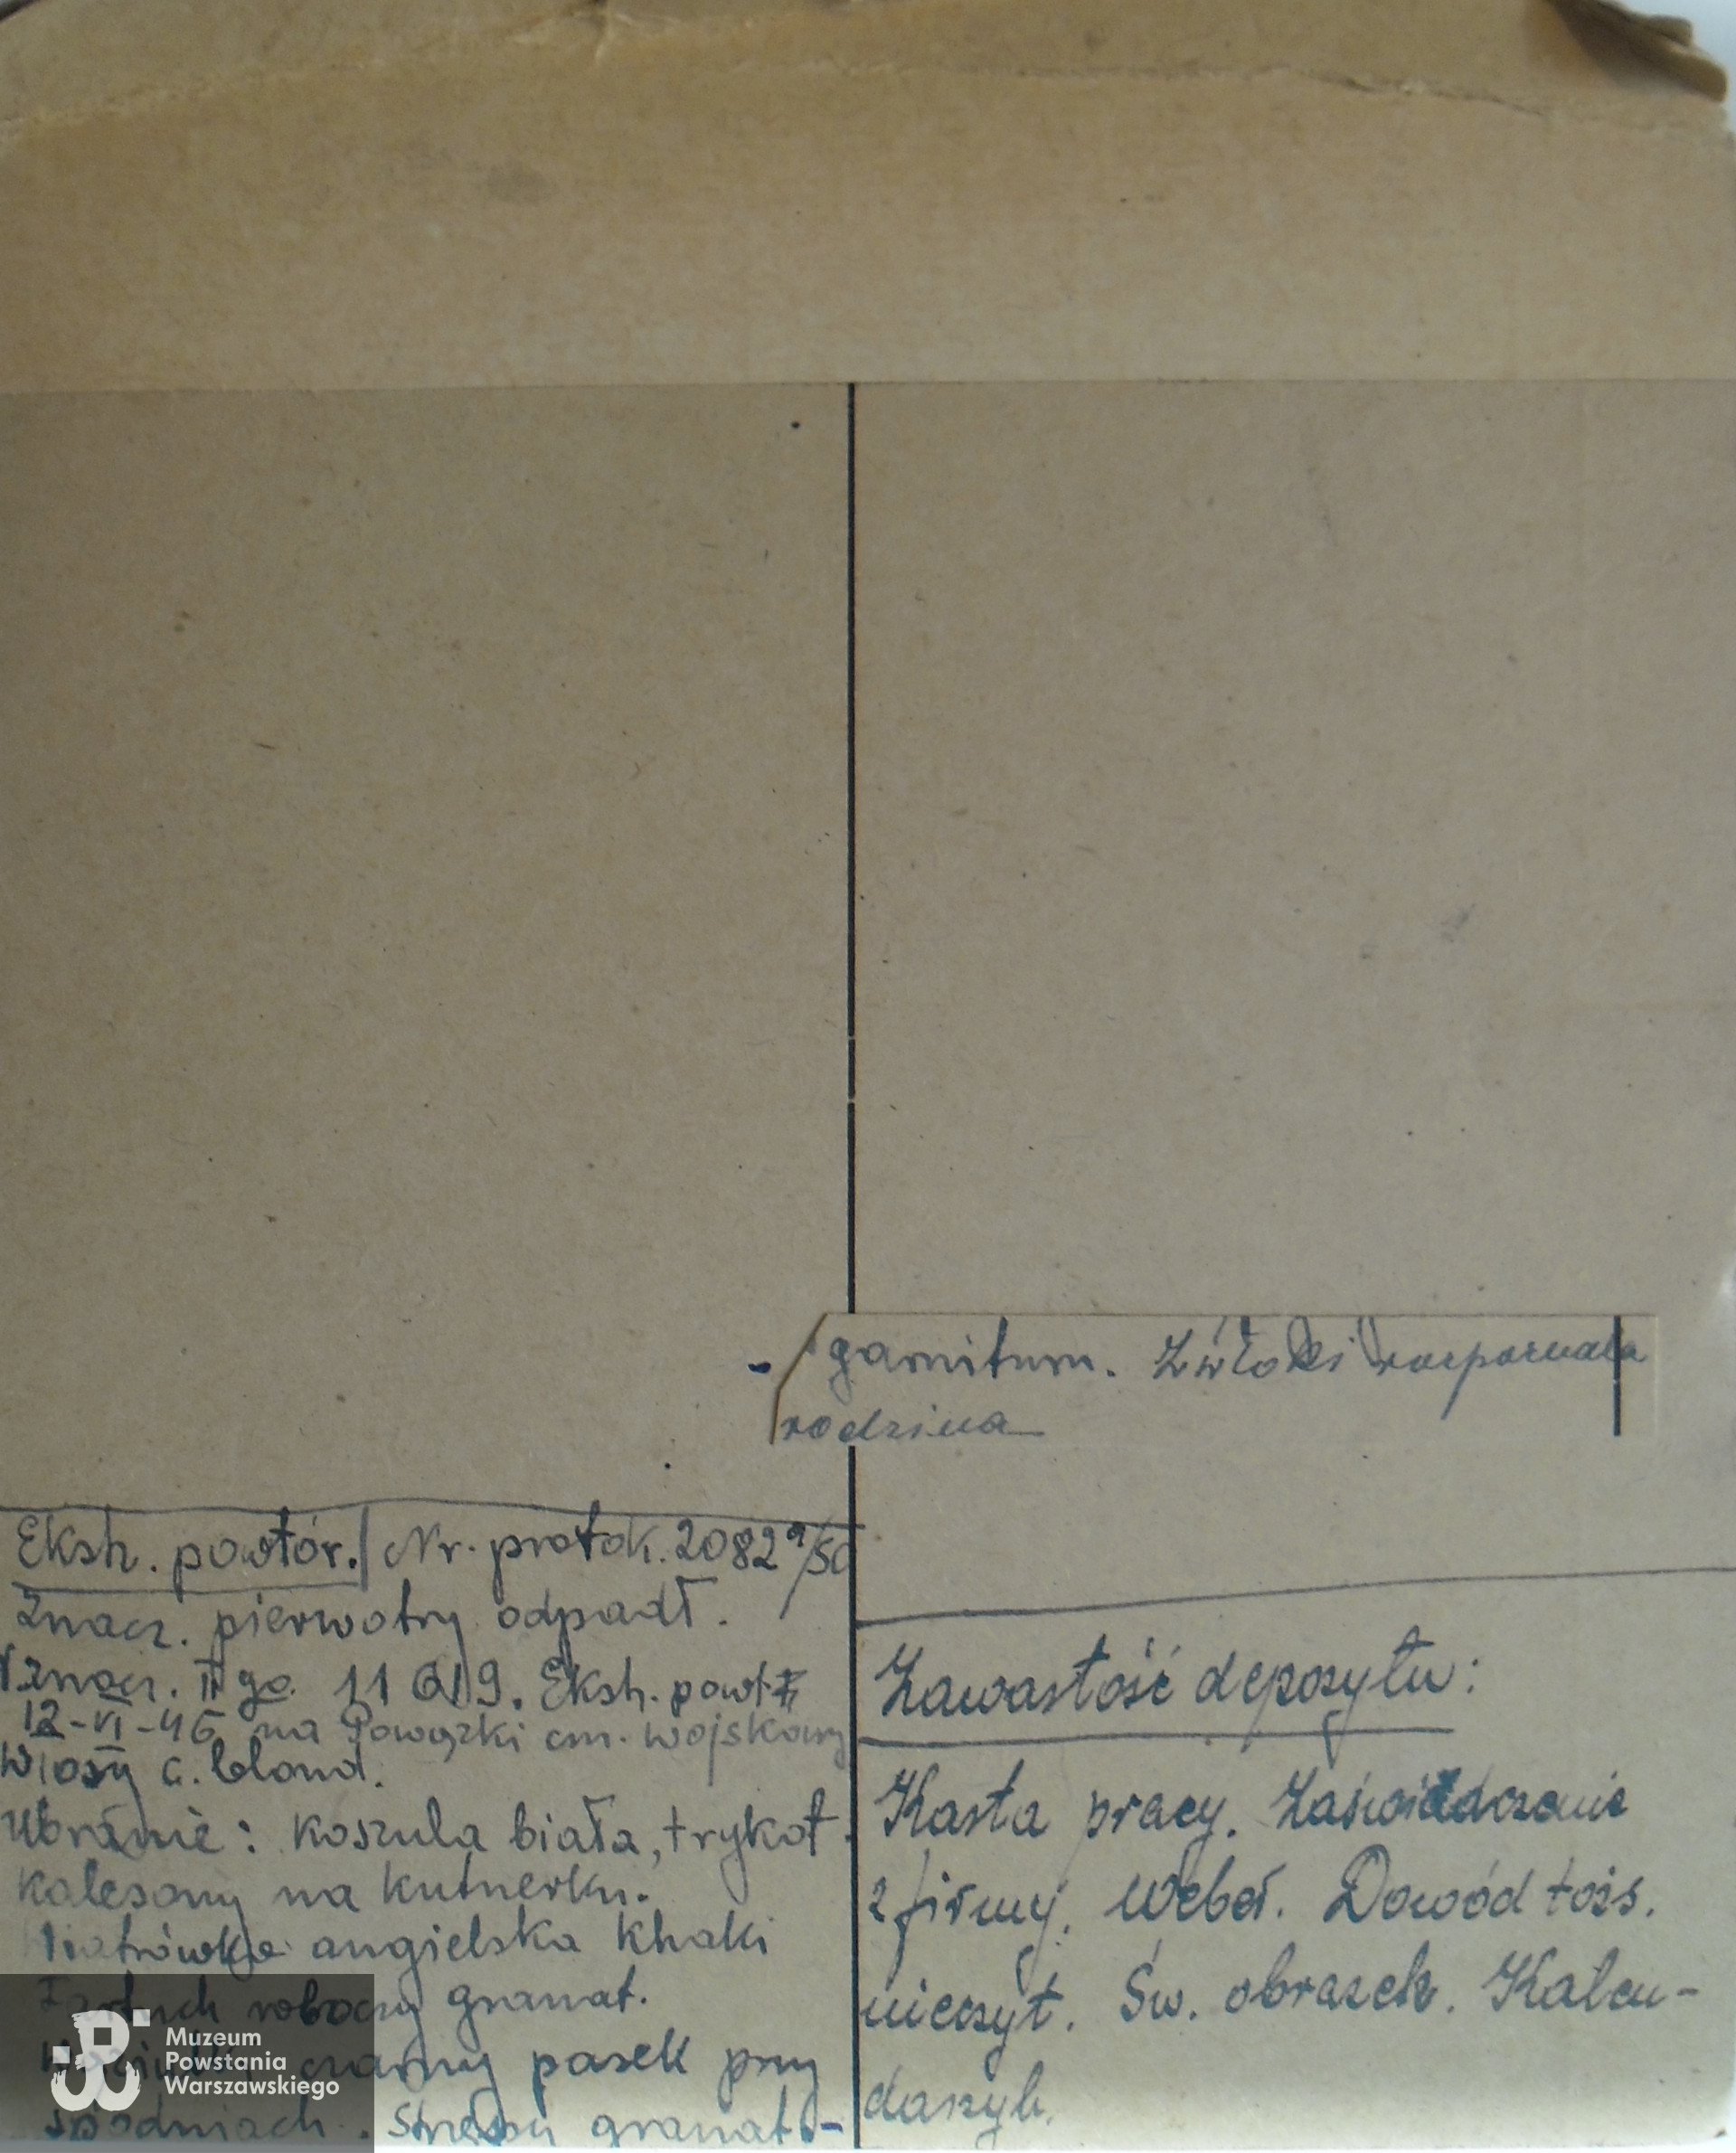 garnitum. Zwłoki rozpoznała
rodzina
Eksh. powtór. Nr. protok. 2082
Znacz. pierwotny odpadł.
znacz. II go. 11 019. Eksh. powt.
12-VI-45 na Powązki cm. wojskowy
Włosy c. blond.
Ubranie: Koszula biała, trykot.
kalesony na kutnerku.
Wiatrówka angielska khaki
Fartuch roboczy granat.
czarny pasek przy
spodniach.
Zawartość depozytu:
Karta pracy. Zaświadczenie
z firmy. Weber. Dowód tożs.
nieczyt. Św. obrazek. Kalen-
darzyk.
Muzeum
Powstania
Warszawskiego